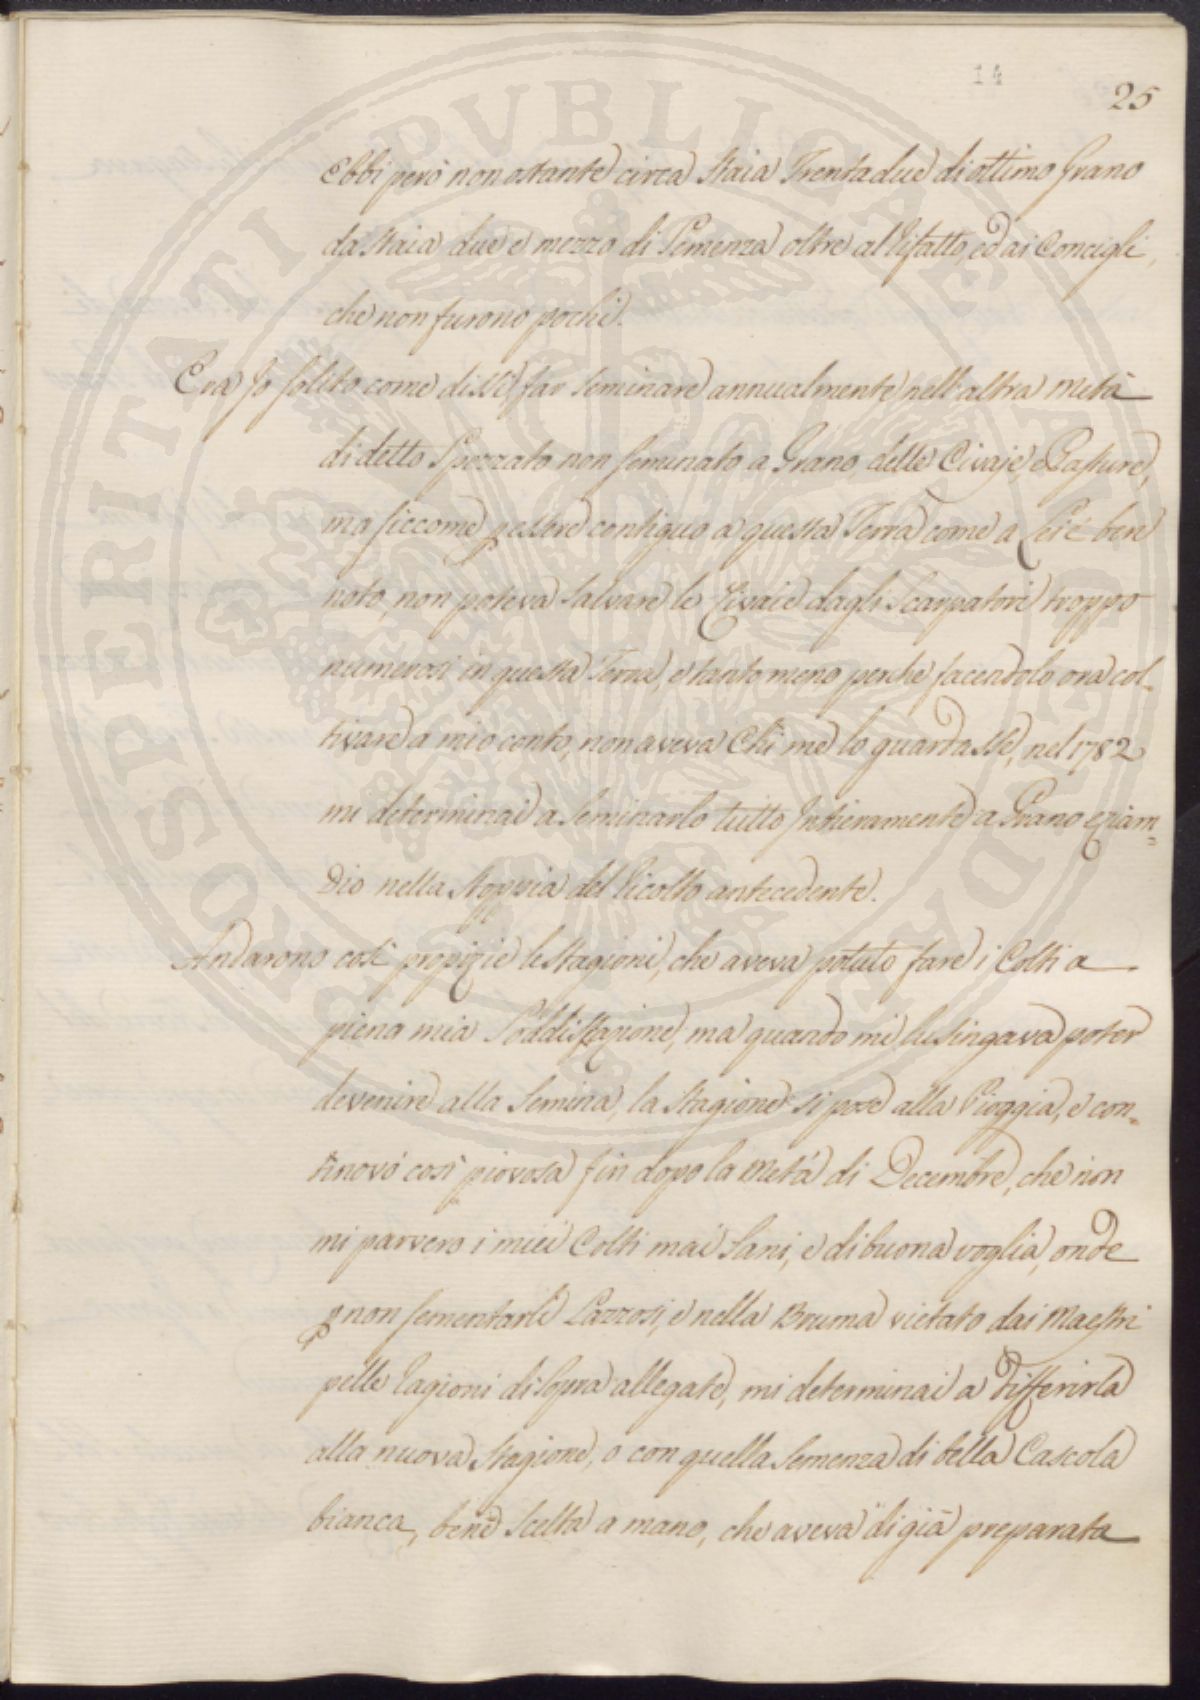 14
25
Ebbi però non ostante circa Staia Trentadue di ottimo Grano
da Staia due e mezzo di Semenza oltre al Rifatto, ed ai Concigli,
che non furono pochi.
Era Io solito come dissi far seminare annualmente nell'altra metà
di detto Spezzato non seminato a Grano, delle Civaje, e Pasture,
ma siccome p essere contiguo a questa Terra come a Lei è ben
noto, non poteva salvare le Civaie dagli Scarpatori troppo
numerosi in questa Terra, e tanto meno perché facendolo ora col-
tivare a mio conto, non aveva Chi me lo guardasse, nel 1782
mi determinai a Seminarlo tutto Intieramente a Grano eziam=
dio nella Stoppia del Ricolto antecedente.
Andarono così propizie le Stagioni, che aveva potuto fare i Colti a
piena mia Soddisfazione, ma quando mi lusingava poter
devenire alla Semina, la Stagione si pose alla Pioggia, e con-
tinovò così piovosa fin dopo la metà di Decembre, che non
mi parvero i miei Colti mai Sani, e di buona voglia, onde
p non sementarli Lazzosi, e nella Bruma vietato dai Maestri
pelle ragioni di Sopra allegate, mi determinai a Differirla
alla nuova Stagione, o con quella Semenza di bella Cascola
bianca, bene Scelta a mano, che aveva di già preparata
PROSPERITATI PVBLICAE AVGENDAE